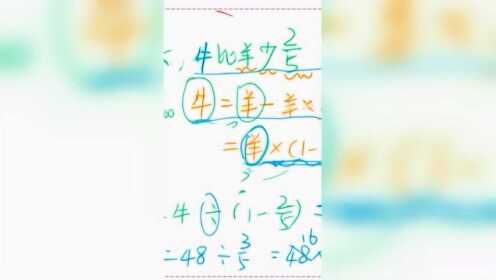 , 牛比羊少2/5
牛=羊-羊×
=羊×(1-
牛÷(1-2/5)=
=48÷3/5=48×
16